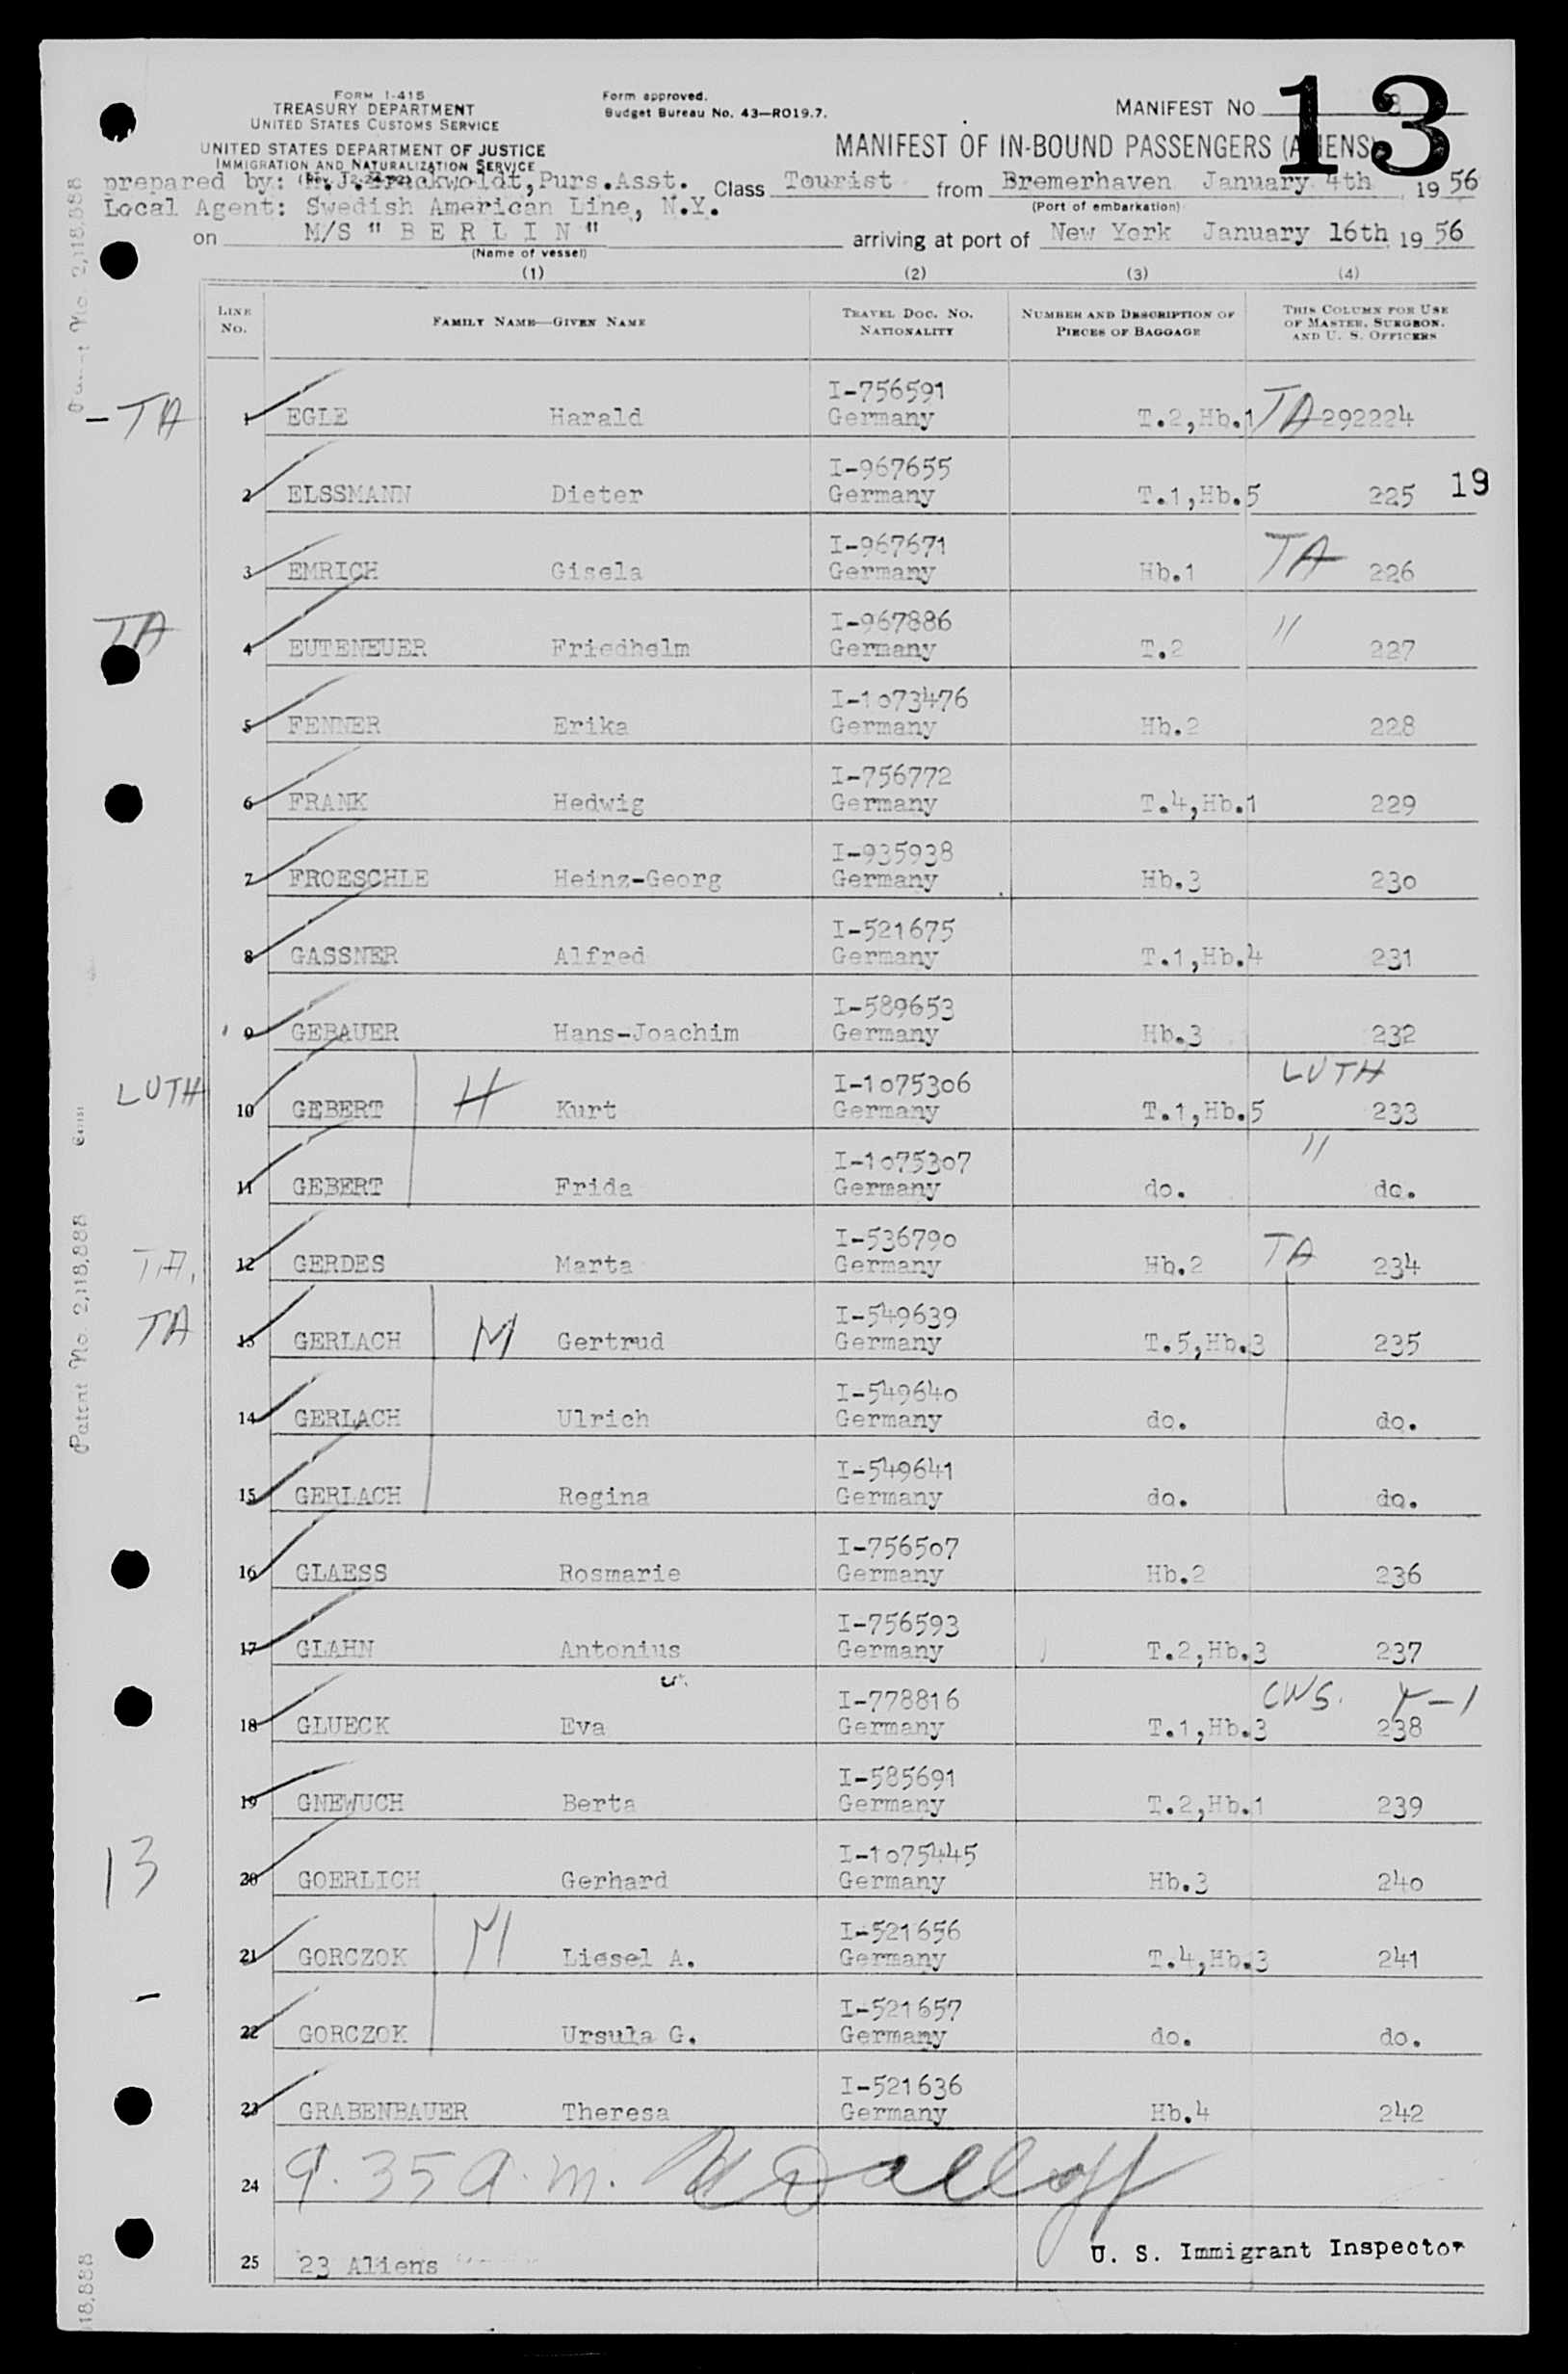 FORM I-415
TREASURY DEPARTMENT
UNITED STATES CUSTOMS SERVICE
UNITED STATES DEPARTMENT OF JUSTICE
IMMIGRATION AND NATURALIZATION SERVICE
Form approved.
Budget Bureau No. 43—RO19.7.
MANIFEST NO 13
MANIFEST OF IN-BOUND PASSENGERS (ALIENS)
prepared by: H.J.Brackwoldt,Purs.Asst. Class Tourist from Bremerhaven January 4th, 1956
(Port of embarkation)
Local Agent: Swedish American Line, N.Y.
on M/S " B E R L I N " arriving at port of New York January 16th, 1956
(Name of vessel)
(1) (2) (3) (4)
LINE No. FAMILY NAME—GIVEN NAME TRAVEL DOC. NO. NATIONALITY NUMBER AND DESCRIPTION OF PIECES OF BAGGAGE THIS COLUMN FOR USE OF MASTER, SURGEON, AND U. S. OFFICERS
I-756591
-TA 1 EGLE Harald Germany T.2,Hb.1 TA 292224
I-967655
2 ELSSMANN Dieter Germany T.1,Hb.5 225 19
I-967671
3 EMRICH Gisela Germany Hb.1 TA 226
I-967886
TA 4 EUTENEUER Friedhelm Germany T.2 " 227
I-1073476
5 FENNER Erika Germany Hb.2 228
I-756772
6 FRANK Hedwig Germany T.4,Hb.1 229
I-935938
7 FROESCHLE Heinz-Georg Germany Hb.3 230
I-521675
8 GASSNER Alfred Germany T.1,Hb.4 231
I-589653
9 GEBAUER Hans-Joachim Germany Hb.3 232
I-1075306 LUTH
LUTH 10 GEBERT H Kurt Germany T.1,Hb.5 233
I-1075307 "
11 GEBERT Frida Germany do. do.
I-536790
TA. 12 GERDES Marta Germany Hb.2 TA 234
I-549639
TA 13 GERLACH M Gertrud Germany T.5,Hb.3 235
I-549640
14 GERLACH Ulrich Germany do. do.
I-549641
15 GERLACH Regina Germany do. do.
I-756507
16 GLAESS Rosmarie Germany Hb.2 236
I-756593
17 GLAHN Antonius Germany T.2,Hb.3 237
I-778816 CWS.
18 GLUECK Eva Germany T.1,Hb.3 238
I-585691
19 GNEWUCH Berta Germany T.2,Hb.1 239
I-1075445
13 20 GOERLICH Gerhard Germany Hb.3 240
I-521656
21 GORCZOK M Liesel A. Germany T.4,Hb.3 241
I-521657
22 GORCZOK Ursula G. Germany do. do.
I-521636
23 GRABENBAUER Theresa Germany Hb.4 242
24 9.35 a.m.
25 23 Aliens U. S. Immigrant Inspector
Patent No. 2,118,888